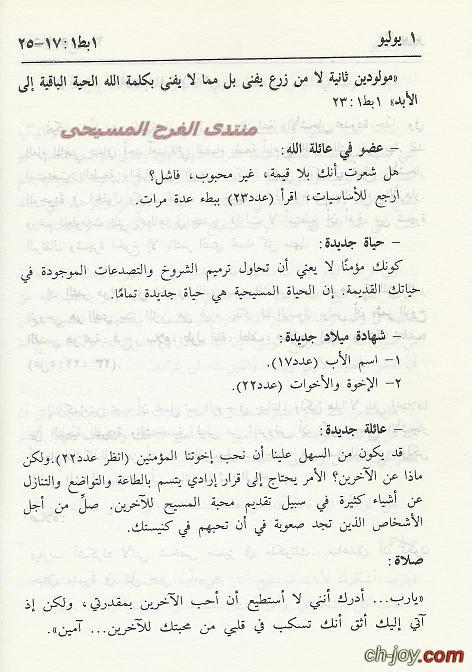 ١ يوليو
١بط١ :١٧-٢٥
«مولودين ثانية لا من زرع يفنى بل مما لا يفنى بكلمة الله الحية الباقية إلى
الأبد» ١بط١ :٢٣
منتدى الفرح المسيحى
– عضو في عائلة الله:
هل شعرت أنك بلا قيمة، غير محبوب، فاشل؟
ارجع للأساسيات، اقرأ (عدد٢٣) ببطء عدة مرات.
– حياة جديدة:
كونك مؤمنًا لا يعني أن تحاول ترميم الشروخ والتصدعات الموجودة في
حياتك القديمة. إن الحياة المسيحية هي حياة جديدة تمامًا.
– شهادة ميلاد جديدة:
١– اسم الأب (عدد١٧).
٢– الإخوة والأخوات (عدد٢٢).
– عائلة جديدة:
قد يكون من السهل علينا أن نحب إخوتنا المؤمنين (انظر عدد٢٢).ولكن
ماذا عن الآخرين؟ الأمر يحتاج إلى قرار إرادي يتسم بالطاعة والتواضع والتنازل
عن أشياء كثيرة في سبيل تقديم محبة المسيح للآخرين. صلِّ من أجل
الأشخاص الذين تجد صعوبة في أن تحبهم في كنيستك.
صلاة:
«يارب... أدرك أنني لا أستطيع أن أحب الآخرين بمقدرتي، ولكن إذ
آتي إليك أثق أنك تسكب في قلبي من محبتك للآخرين... آمين».
ch-joy.com